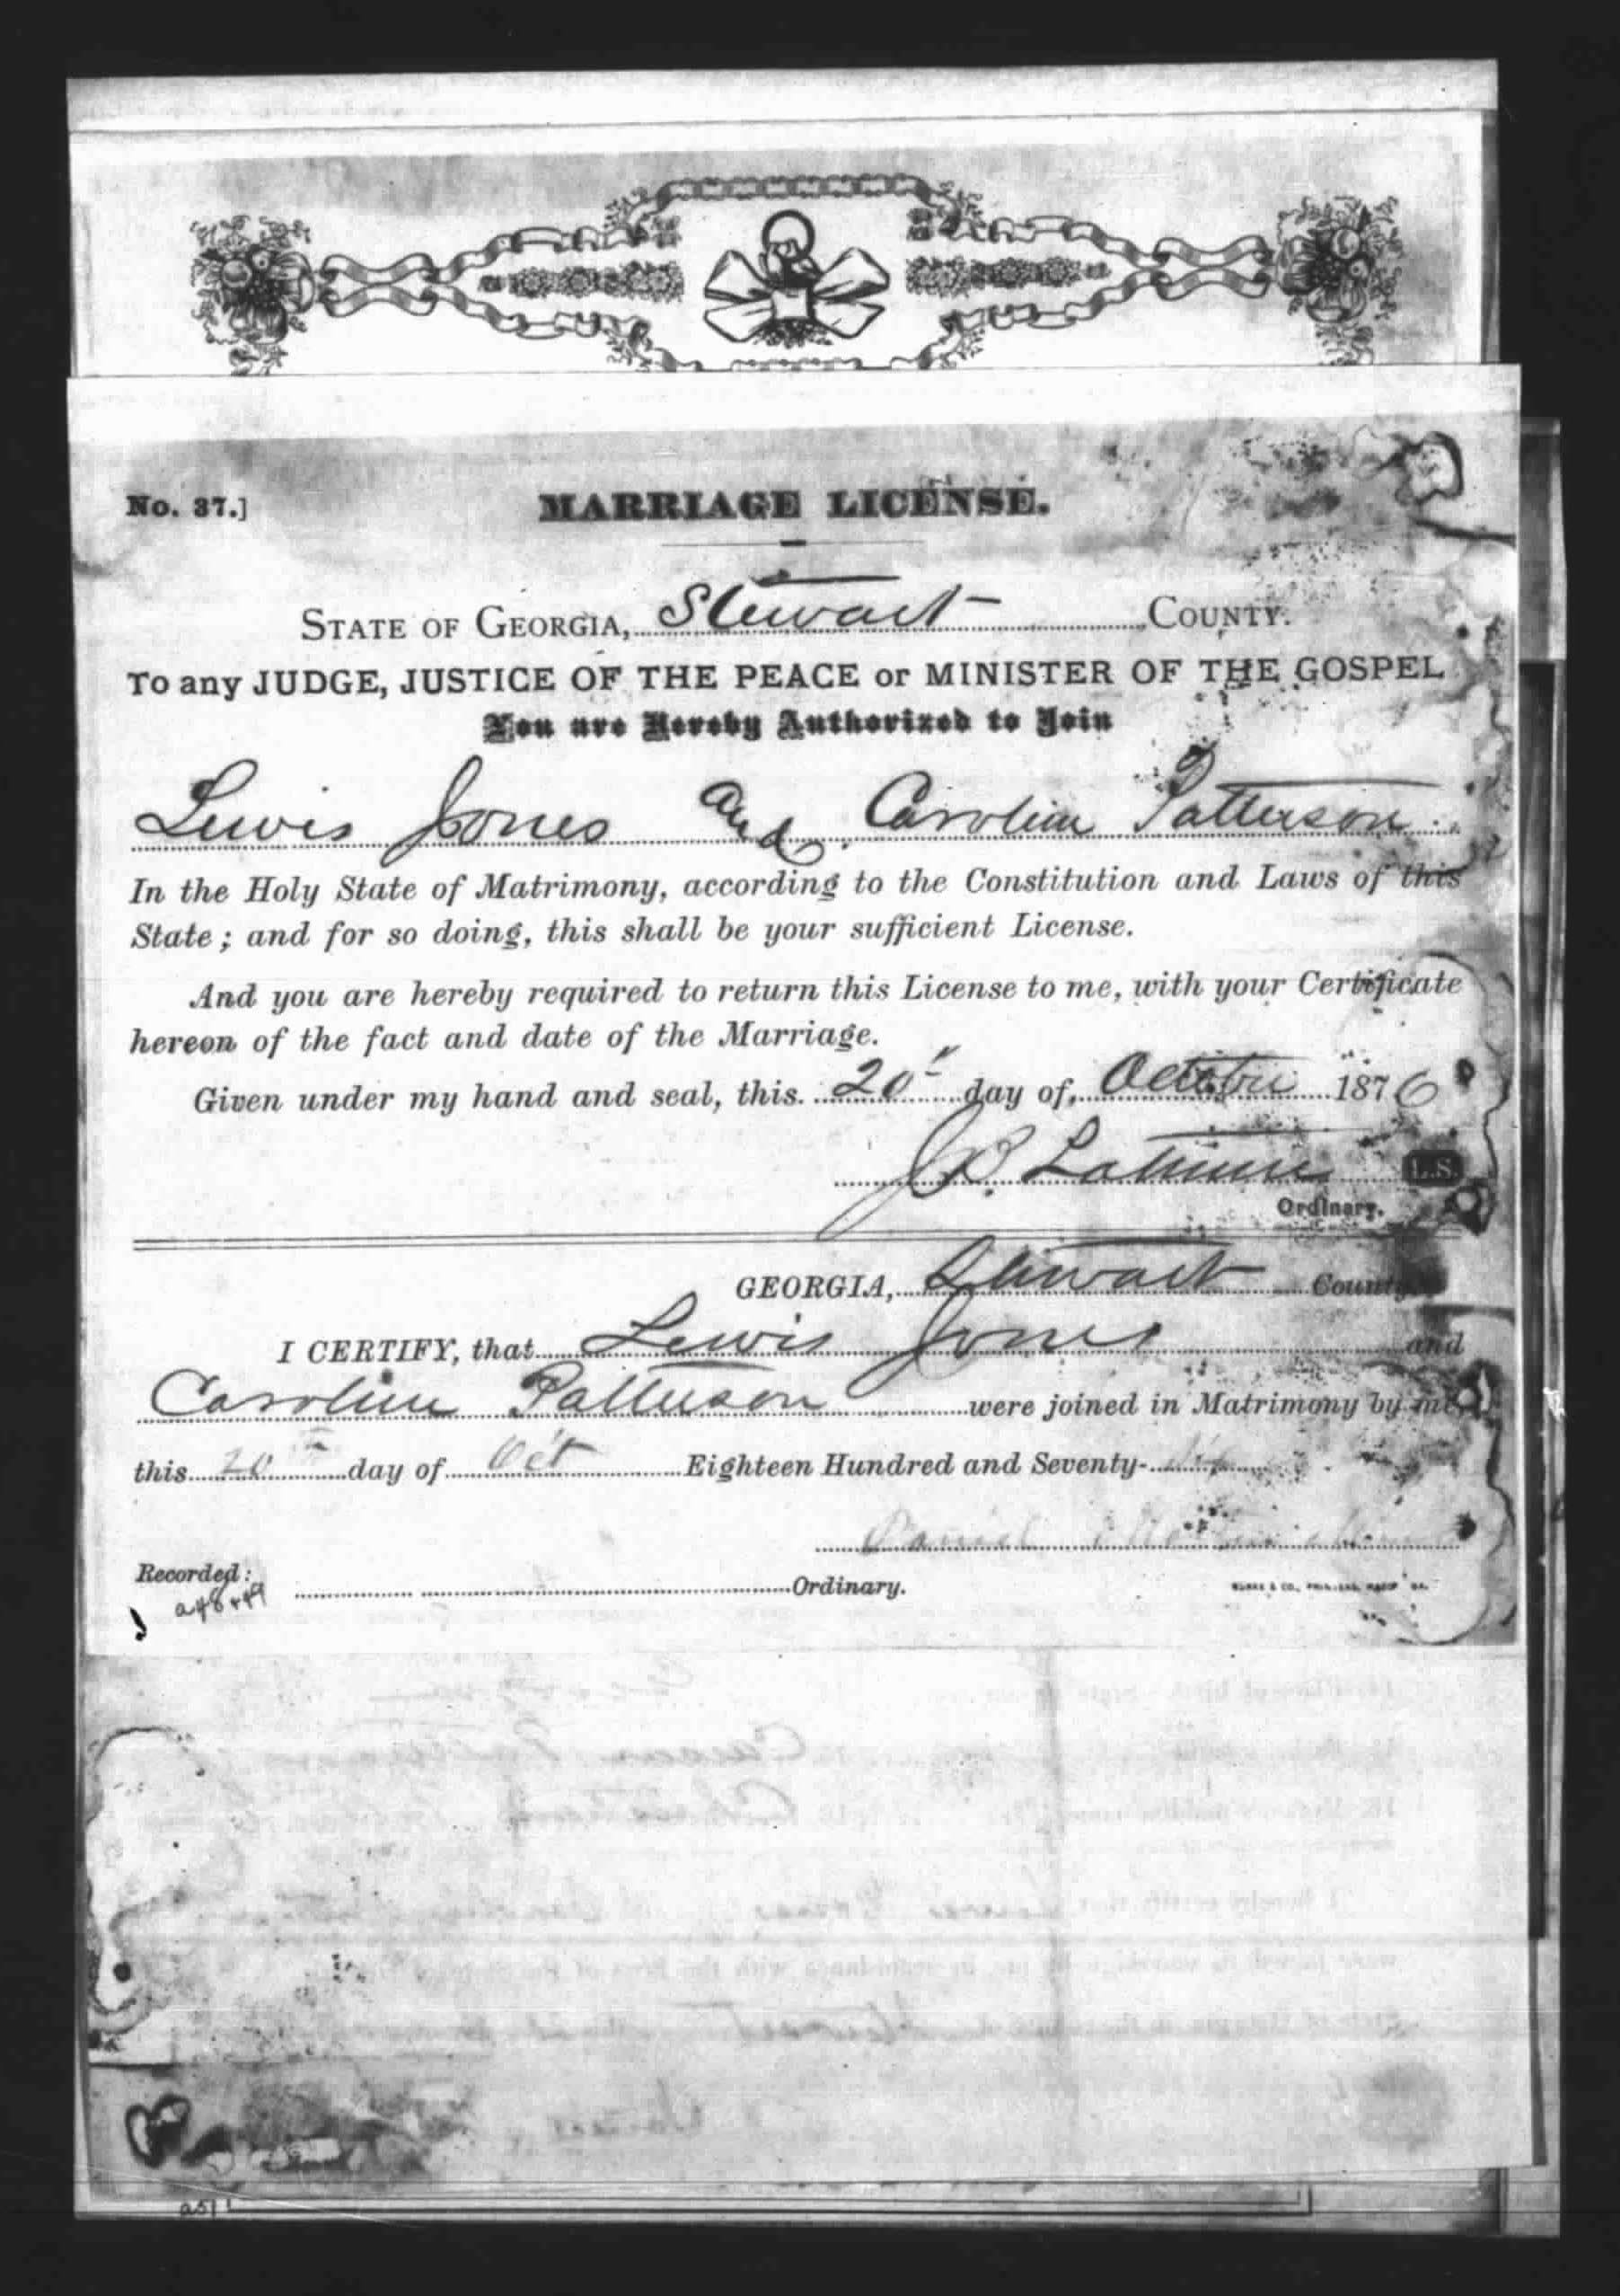 No. 37.]
MARRIAGE LICENSE.
STATE OF GEORGIA, Stewart COUNTY.
To any JUDGE, JUSTICE OF THE PEACE or MINISTER OF THE GOSPEL
You are Hereby Authorized to Join
Lewis Jones and Caroline Patterson
In the Holy State of Matrimony, according to the Constitution and Laws of this
State; and for so doing, this shall be your sufficient License.
And you are hereby required to return this License to me, with your Certificate
hereon of the fact and date of the Marriage.
Given under my hand and seal, this 20" day of October 1876
J.B. Latimer L.S.
Ordinary.
GEORGIA, Stewart County.
I CERTIFY, that Lewis Jones and
Caroline Patterson were joined in Matrimony by me,
this 20th day of Oct Eighteen Hundred and Seventy-Six
Daniel
Recorded:
a48+49
Ordinary.
a51